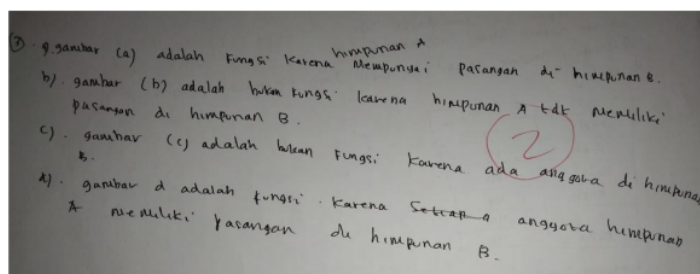 ③. g. gambar (a) adalah Fungsi Karena himpunan A Mempunyai pasangan di himpunan B.
b). gambar (b) adalah bukan Fungsi karena himpunan A tdk Memiliki
pasangan di himpunan B.
c). gambar (c) adalah bukan Fungsi Karena ada anggota di himpunan
B.
2
d). gambar d adalah fungsi. Karena Setiap a anggota himpunan
A memiliki pasangan di himpunan B.